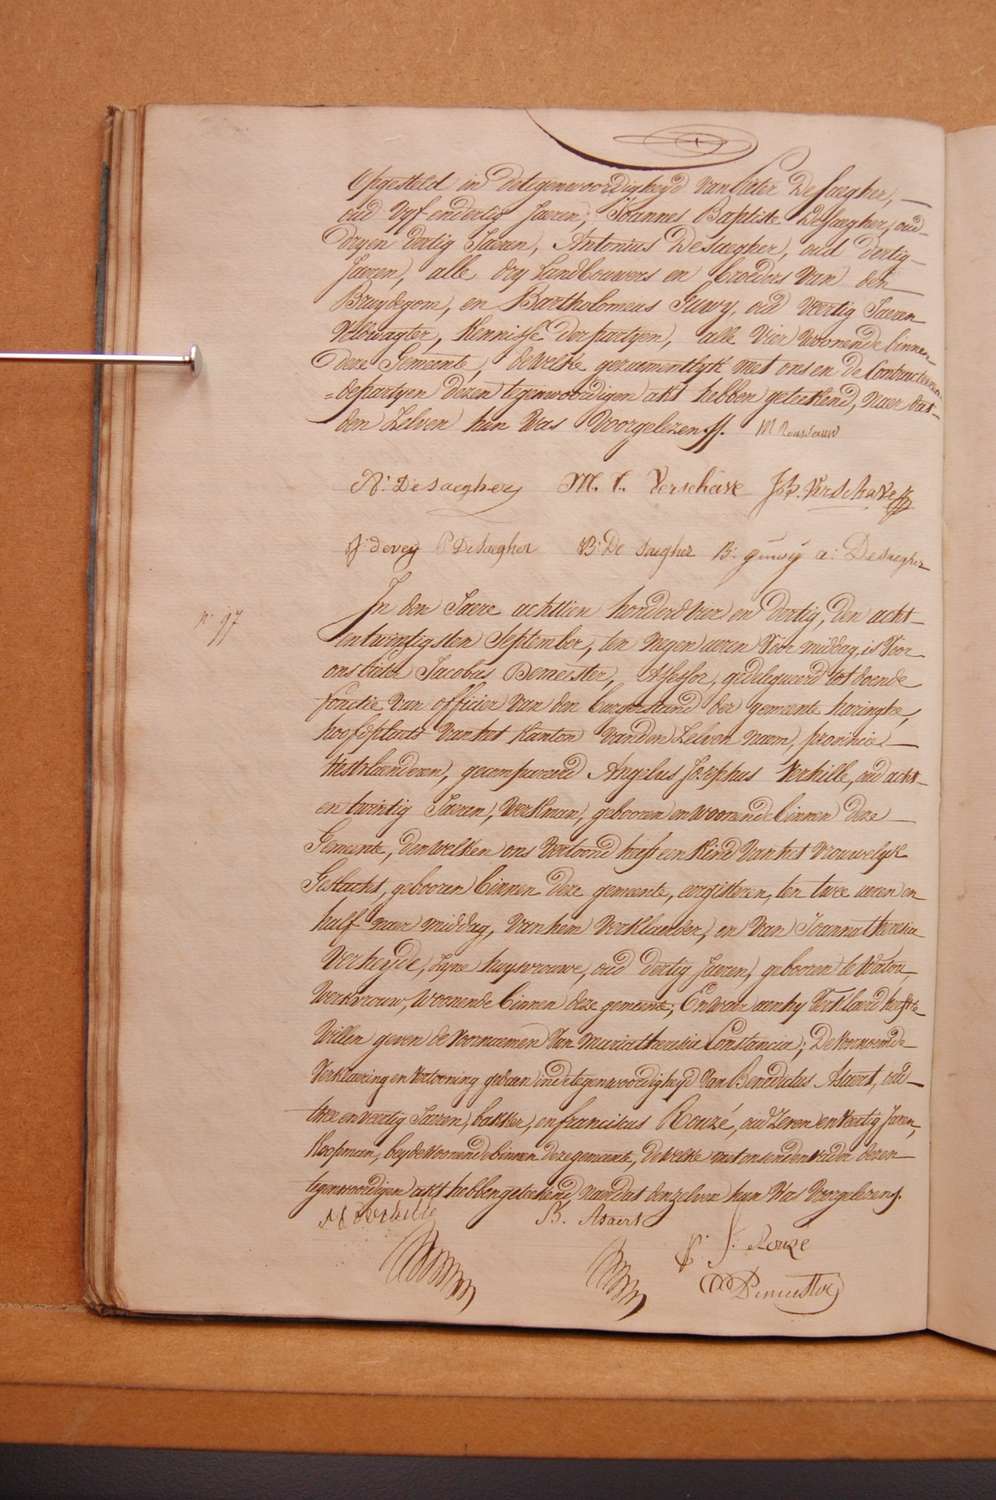 Opgesteld in detegenwoordigheyd van Pieter De Saegher,
oud vyf endertig Jaeren, Joannes Baptiste DeSaegher, oud
dryen dertig Jaeren, Antonius DeSaegher, oud dertig
Jaeren, alle dry Landbouwers en broeders van den
Bruydegom, en Bartholomeus Guwy, oud veertig Jaeren
Veldwagter, Kennisse der partyen, alle vier woonende binnen
deze Gemeente, dewelke gezaementlyk met ons en de Contracteeren-
=departyen dezen tegenwoordigen akt hebben geteekend, naer dat
den Zelven hun was voorgelezen.
A: DeSaegher M. C. Verscheive Jos. Verschave
J: devey P DeSaegher B: De Saegher B: guwy a: Desaegher
n.º 97
In den Jaere achttien honderd vier en dertig, den acht-
entwintigsten September, ten negen uren Voor middag, is voor
ons Pieter Jacobus Bemeester, Assessor, gedelegueerd tot doende
fonctie van officier van den burgerstand der gemeente haringhe,
hoofdplaets van het Kanton van den Zelven naem, provincie
Westvlaenderen, gecompareerd Angelus Josephus Verhille, oud acht-
en twintig Jaeren, werkman, gebooren en woonende binnen deze
Gemeente, denwelken ons vertoond heeft een Kind van het vrouwelyk
Geslacht, gebooren binnen deze gemeente, eergisteren, ten twee uren en
half naer middag, van hem verklaerder, en van Joanna theresia
Verheyde, zyne huysvrouwe, oud dertig Jaeren, gebooren te Watou,
Werkvrouw, woonende binnen deze gemeente, En waer aen hy verklaerd heeft te
willen geven de voornaemen van Maria theresia Constancia; De voornoemde
verklaering en vertooning gedaen in detegenwoordigheyd van Benedictus Asaert, oud
twee en veertig Jaeren, bakker, en franciskus Rouzé, oud zeven en veertig Jaeren,
Koopman, beyde woonende binnen deze gemeente, dewelke met ons en den vader dezen
tegenwoordigen akt hebben geteekend, naer dat den zelven hun was voorgelezen.
A J Verhille B. Asaert
f. Rouze